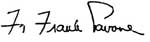 Fr Frank Pavone